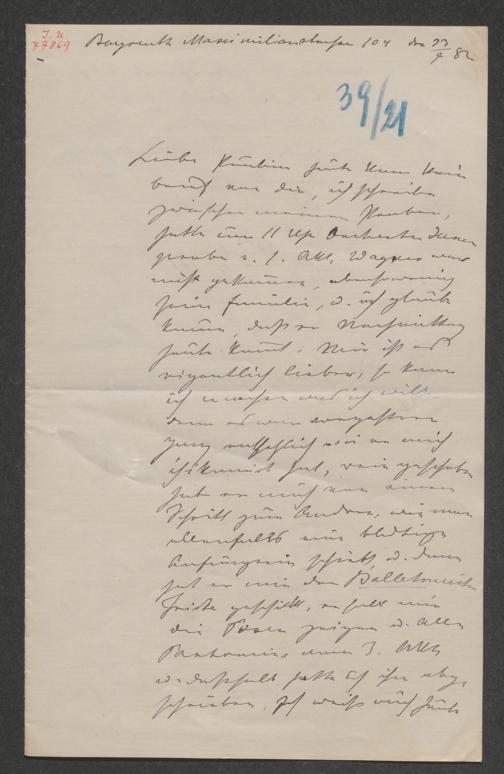 I.N.
77869
Bayreuth Maximilianstrasse 104 den 23/7 82
39/21
Liebe Paulin heute kam kein
brief von dir, ich schreibe
zwischen meinen Proben,
hatte um 11 Uhr Orchester
probe v. 1. Akt, Wagner war
nicht gekommen, ebensowenig
seine Familie, u. ich glaube
kaum, daß er Nachmittag
heute kommt. Mir ist es
eigentlich lieber, so kann
ich machen was ich will
denn es war vorgestern
ganz entsetzlich wie er mich
hat, rein geschoben
hat er mich von einem
Schritt zum Andern, wie man
allenfalls eine blutige
Anfängerin schiebt, u. dann
hat er mir den Balletmeister
Fricke geschickt, er soll mir
die Posen zeigen u. alle
Pantomime vom 3. Akt
u. deßhalb hatte ich ihm abge
schrieben. Ich weiß auch heute